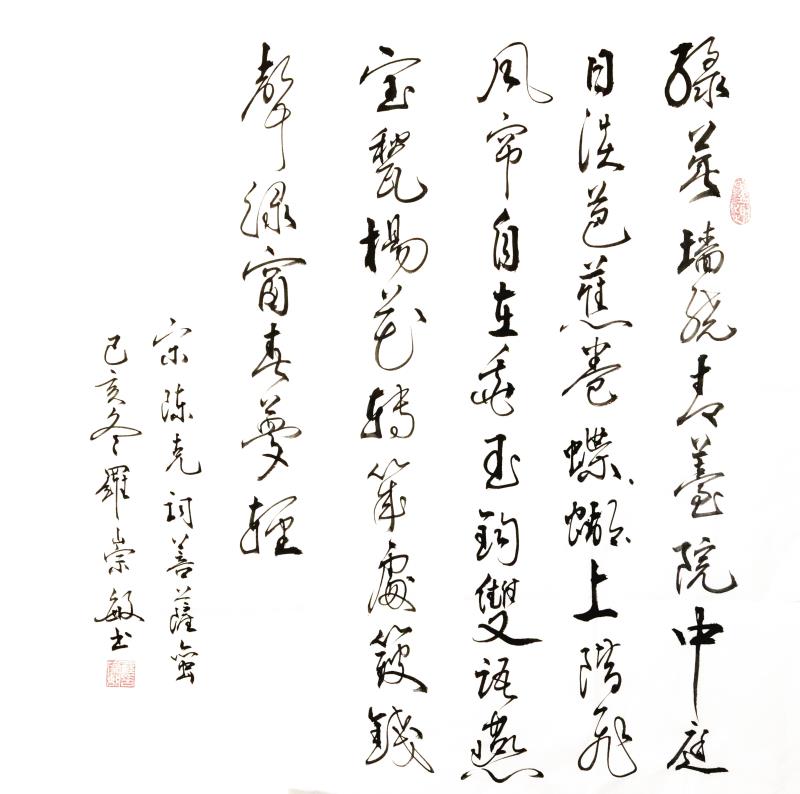 綠蕪墻繞青薹院中庭
日淡芭蕉卷蝶蝴上階飛
風帘自在垂玉鈎雙語燕
宝甃楊花轉幾處簸錢
聲綠窗春夢輕
宋陳克詞菩薩蠻
己亥冬羅崇敏书